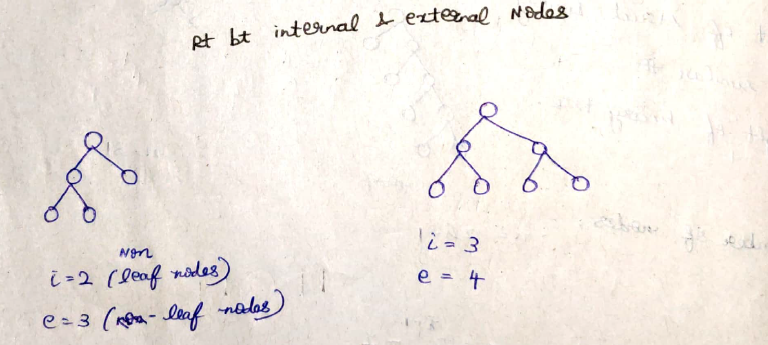 Rt bt internal & external Nodes
i = 2 (Non leaf nodes)
e = 3 (leaf nodes)
i = 3
e = 4